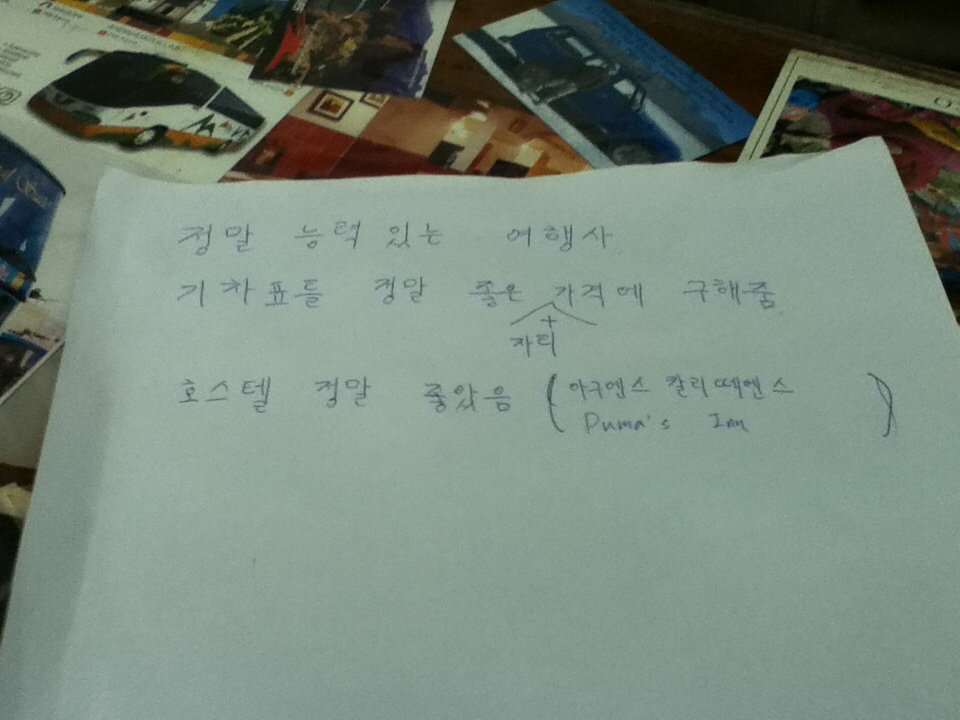 정말 능력 있는 여행사
기차표들 정말 좋은 가격에 구해줌.
+
자리
호스텔 정말 좋았음 (아구엔스 칼리떼엔스
Puma's Inn)